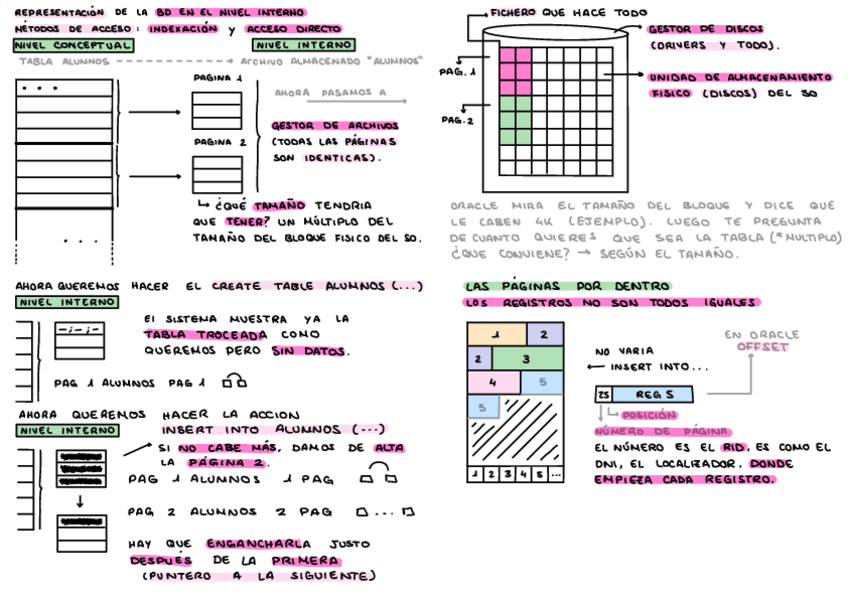 REPRESENTACIÓN DE LA BD EN EL NIVEL INTERNO
MÉTODOS DE ACCESO: INDEXACIÓN Y ACCESO DIRECTO
NIVEL CONCEPTUAL
NIVEL INTERNO
TABLA ALUMNOS
ARCHIVO ALMACENADO "ALUMNOS"
PAGINA 1
AHORA PASAMOS A
GESTOR DE ARCHIVOS
(TODAS LAS PÁGINAS
SON IDENTICAS).
PAGINA 2
¿QUÉ TAMAÑO TENDRIA
QUE TENER? UN MÚLTIPLO DEL
TAMAÑO DEL BLOQUE FISICO DEL SO.
FICHERO QUE HACE TODO
GESTOR DE DISCOS
(DRIVERS Y TODO).
PAG. 1
UNIDAD DE ALMACENAMIENTO
FISICO (DISCOS) DEL SO
PAG. 2
ORACLE MIRA EL TAMAÑO DEL BLOQUE Y DICE QUE
LE CABEN 4K (EJEMPLO). LUEGO TE PREGUNTA
DE CUANTO QUIERES QUE SEA LA TABLA (*MULTIPLO)
¿QUE CONVIENE? → SEGÚN EL TAMAÑO.
AHORA QUEREMOS HACER EL CREATE TABLE ALUMNOS (...)
NIVEL INTERNO
El SISTEMA MUESTRA YA LA
TABLA TROCEADA COMO
QUEREMOS PERO SIN DATOS.
PAG 1 ALUMNOS PAG 1
AHORA QUEREMOS HACER LA ACCION
INSERT INTO ALUMNOS (...)
NIVEL INTERNO
SI NO CABE MÁS, DAMOS DE ALTA
LA PÁGINA 2.
PAG 1 ALUMNOS 1 PAG
PAG 2 ALUMNOS 2 PAG
HAY QUE ENGANCHARLA JUSTO
DESPUÉS DE LA PRIMERA
(PUNTERO A LA SIGUIENTE)
LAS PÁGINAS POR DENTRO
LOS REGISTROS NO SON TODOS IGUALES
1 2
2 3
4 5
5
1 2 3 4 5 ...
NO VARIA
← INSERT INTO...
EN ORACLE
OFFSET
25 REG 5
POSICIÓN
NÚMERO DE PÁGINA
EL NÚMERO ES EL RID, ES COMO EL
DNI, EL LOCALIZADOR. DONDE
EMPIEZA CADA REGISTRO.